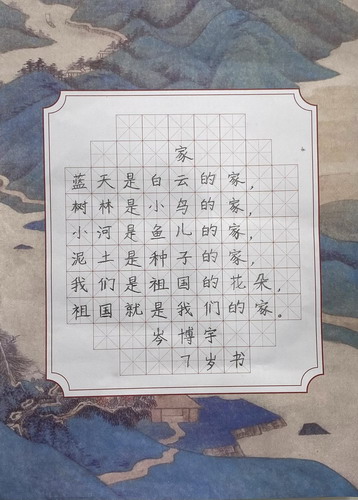 家
蓝天是白云的家，
树林是小鸟的家，
小河是鱼儿的家，
泥土是种子的家，
我们是祖国的花朵，
祖国就是我们的家。
岑博宇
7岁书